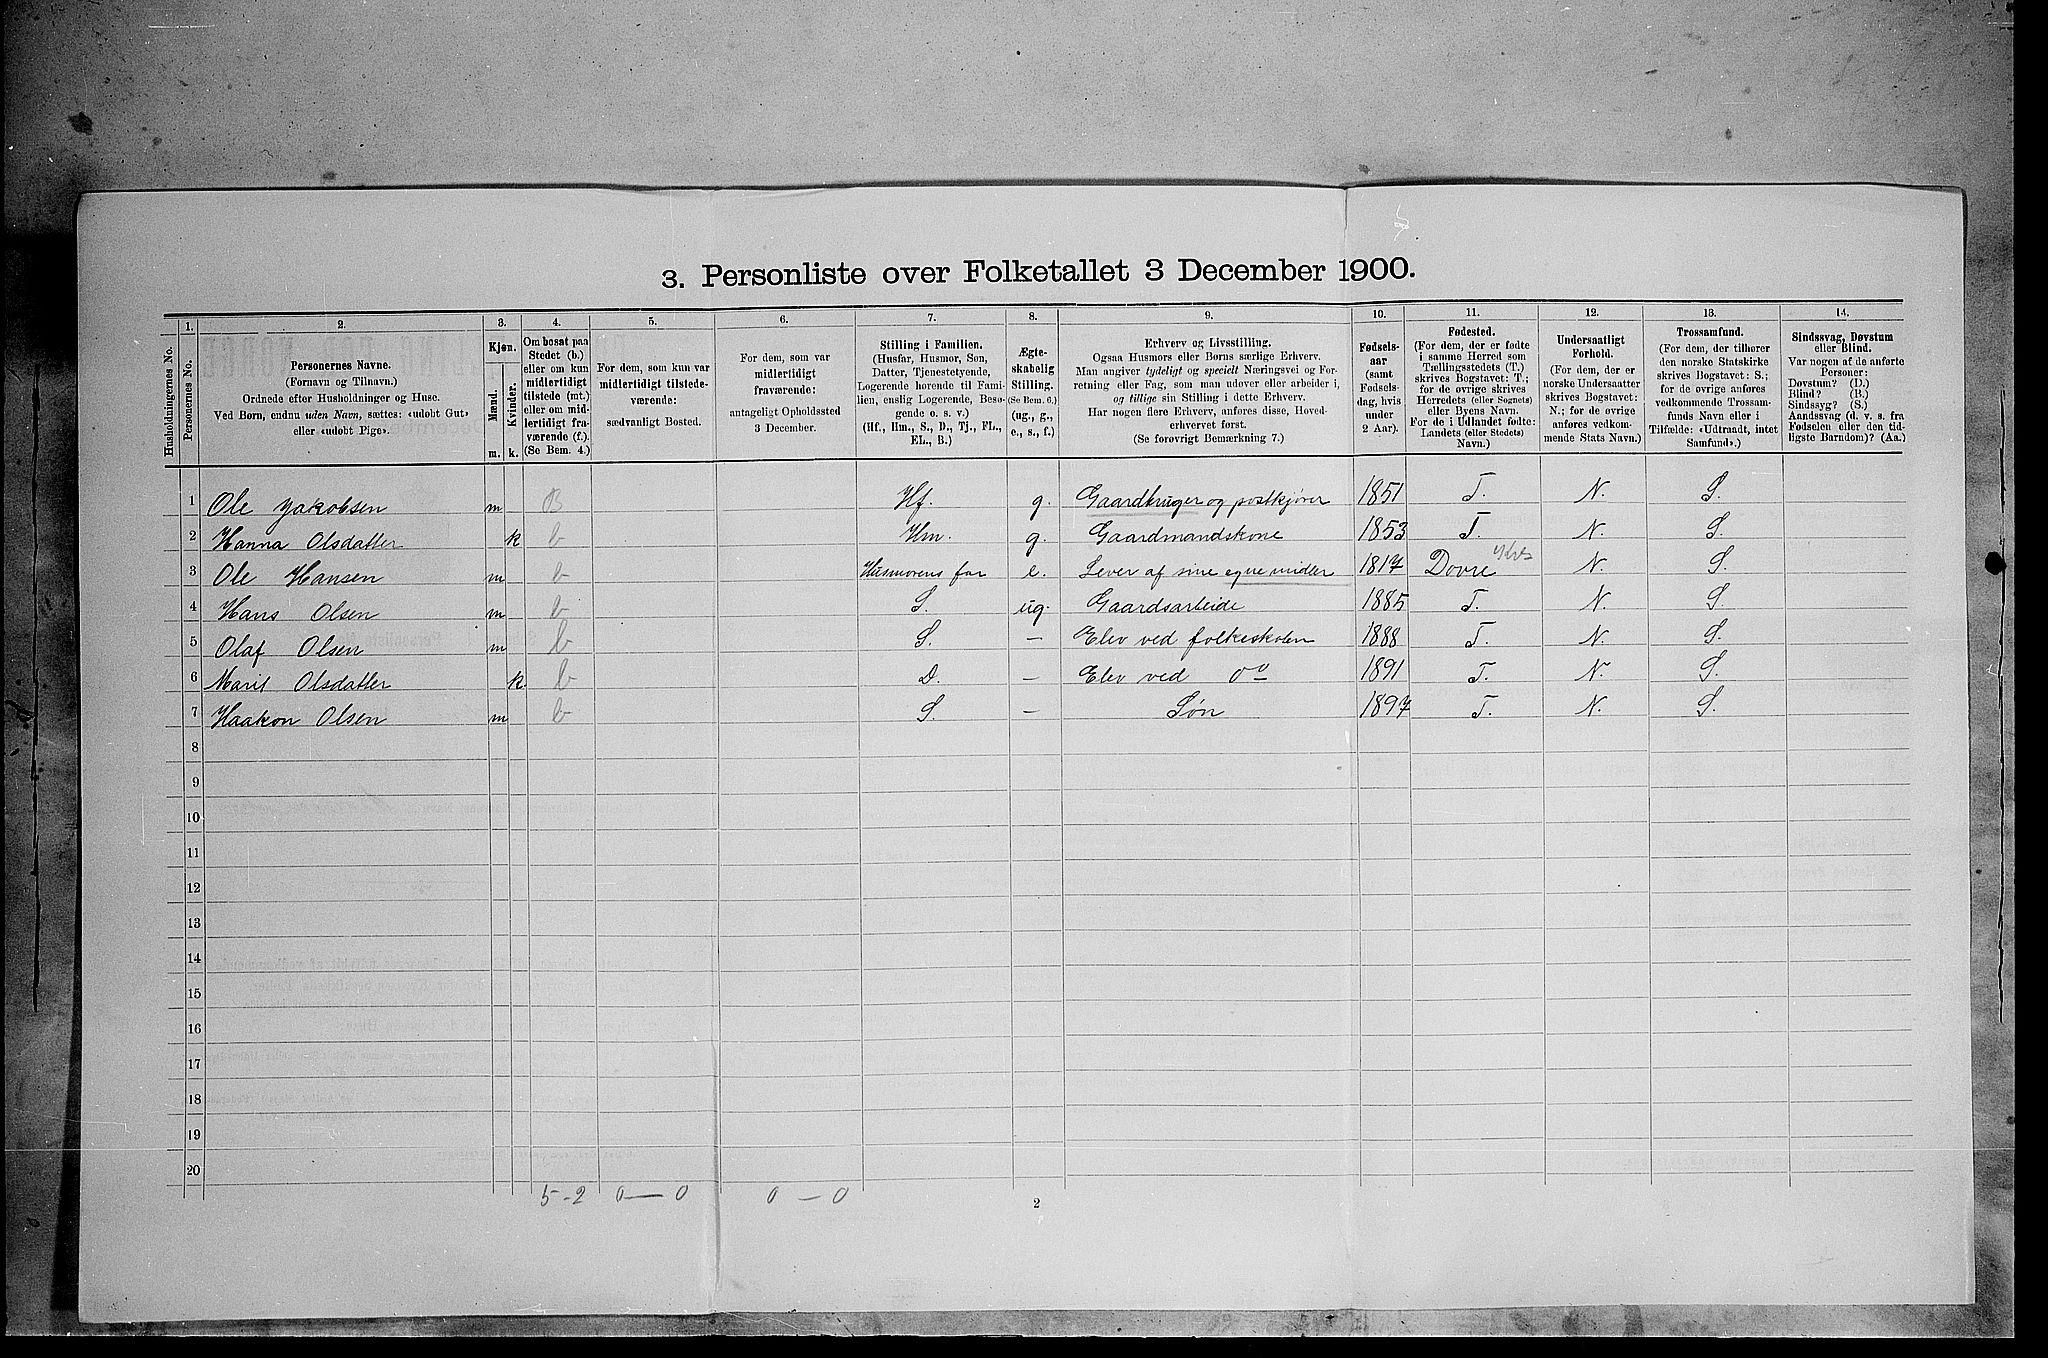 3. Personliste over Folketallet 3 December 1900.
1. 2. 3. 4. 5. 6. 7. 8. 9. 10. 11. 12. 13. 14.
Husholdningernes No.
Personernes No.
Personernes Navne.
(Fornavn og Tilnavn.)
Ordnede efter Husholdninger og Huse.
Ved Børn, endnu uden Navn, sættes: «udøbt Gut»
eller «udøbt Pige».
Kjøn.
Mænd.
Kvinder.
m. k.
Om bosat paa
Stedet (b.)
eller om kun
midlertidigt
tilstede (mt.)
eller om mid-
lertidigt fra-
værende (f.).
(Se Bem. 4.)
For dem, som kun var
midlertidigt tilstede-
værende:
sædvanligt Bosted.
For dem, som var
midlertidigt
fraværende:
antageligt Opholdssted
3 December.
Stilling i Familien.
(Husfar, Husmor, Søn,
Datter, Tjenestetyende,
Logerende hørende til Fami-
lien, enslig Logerende, Besø-
gende o. s. v.)
(Hf., Hm., S., D., Tj., FL.,
EL., B.)
Ægte-
skabelig
Stilling.
(Se Bem. 6.)
(ug., g.,
e., s., f.)
Erhverv og Livsstilling.
Ogsaa Husmors eller Børns særlige Erhverv.
Man angiver tydeligt og specielt Næringsvei og For-
retning eller Fag, som man udøver eller arbeider i,
og tillige sin Stilling i dette Erhverv.
Har nogen flere Erhverv, anføres disse, Hoved-
erhvervet først.
(Se forøvrigt Bemærkning 7.)
Fødsels-
aar
(samt
Fødsels-
dag, hvis
under
2 Aar).
Fødested.
(For dem, der er fødte
i samme Herred som
Tællingsstedets (T.)
skrives Bogstavet: T.;
for de øvrige skrives
Herredets (eller Sognets)
eller Byens Navn.
For de i Udlandet fødte:
Landets (eller Stedets)
Navn.)
Undersaatligt
Forhold.
(For dem, der er
norske Undersaatter
skrives Bogstavet:
N.; for de øvrige
anføres vedkom-
mende Stats Navn.)
Trossamfund.
(For dem, der tilhører
den norske Statskirke
skrives Bogstavet: S.;
for de øvrige anføres
vedkommende Trossam-
funds Navn eller i
Tilfælde: «Udtraadt, intet
Samfund».)
Sindssvag, Døvstum
eller Blind.
Var nogen af de anførte
Personer:
Døvstum? (D.)
Blind? (B.)
Sindssyg? (S.)
Aandssvag (d. v. s. fra
Fødselen eller den tid-
ligste Barndom)? (Aa.)
1 Ole Jakobsen m B Hf. g. Gaardbruger og postkjører 1851 T. N. S.
2 Hanna Olsdatter k b Hm. g. Gaardmandskone 1853 T. N. S.
3 Ole Hansen m b Husmorens far e. Lever af sine egne midler 1817 Dovre N. S.
4 Hans Olsen m b S. ug. Gaardsarbeide 1885 T. N. S.
5 Olaf Olsen m b S. — Elev ved folkeskolen 1888 T. N. S.
6 Marit Olsdatter k. b D. — Elev ved do 1891 T. N. S.
7 Haakon Olsen m b S. — Søn 1897 T. N. S.
8
9
10
11
12
13
14
15
16
17
18
19
20
5-2 0—0 0—0
2